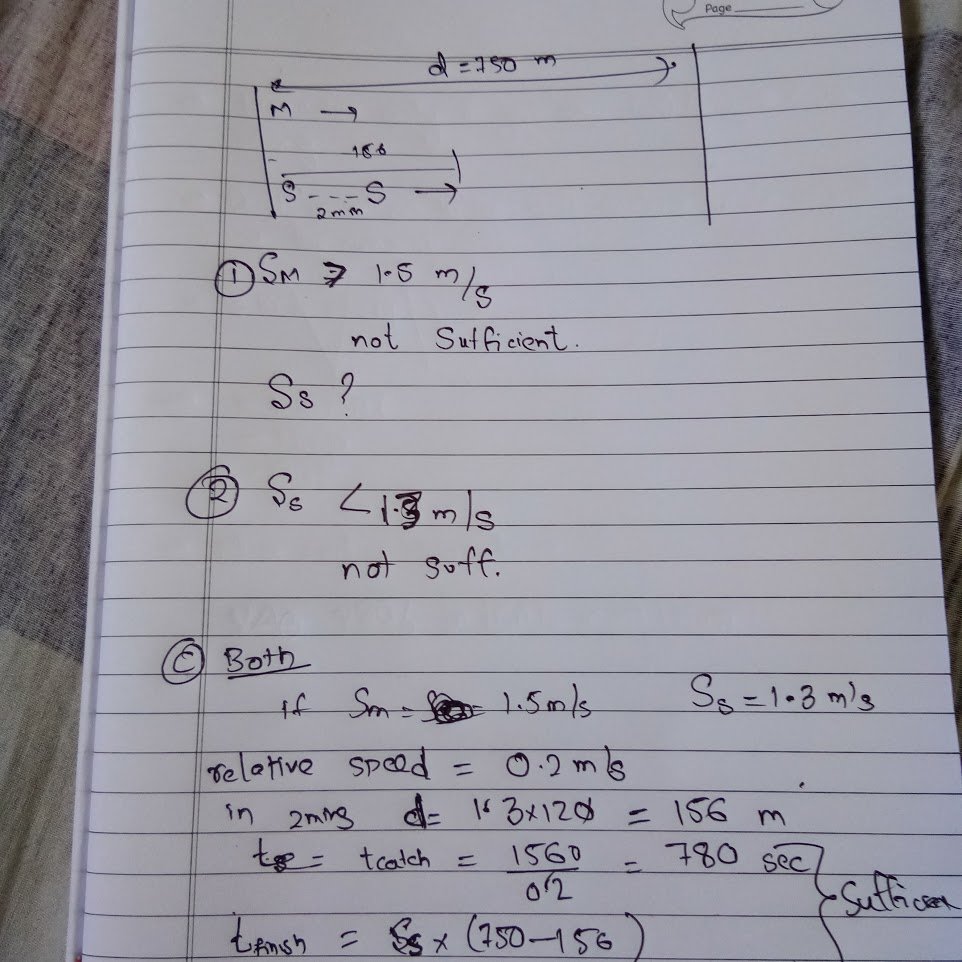 Page
d = 750 m
M →
156
S - - - - S →
2 min
① SM > 1.5 m/s
not Sufficient.
Ss ?
② Ss < 1.3 m/s
not suff.
Ⓒ Both
if Sm = 1.5 m/s Ss = 1.3 m/s
relative speed = 0.2 m/s
in 2mins d = 1.3 x 120 = 156 m
= tcatch = 1560/0.2 = 780 sec
Sufficien
tfinish = Ss x (750 - 156)